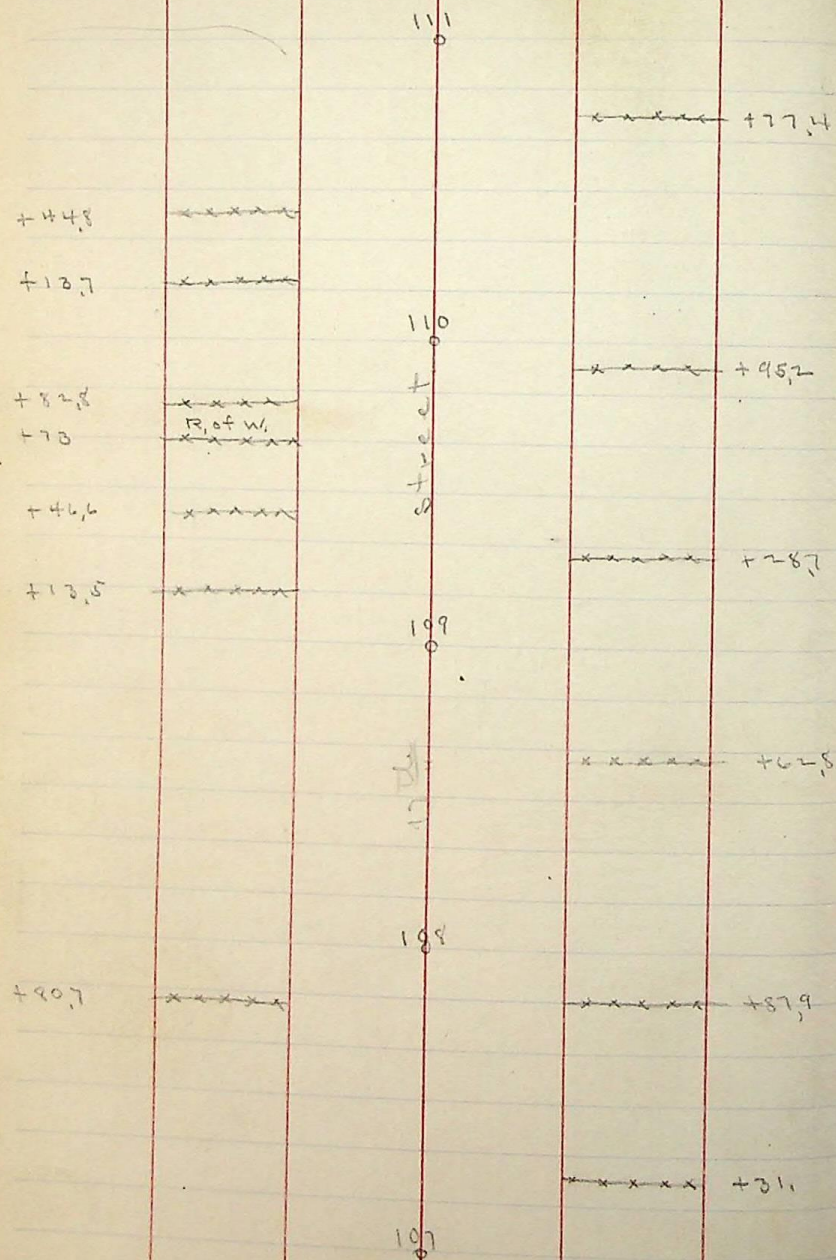 111
+77.4
+44.8
+13.7
110
+95.2
+82.8
R. of W.
+73
Street
+46.6
+28.7
+13.5
109
+62.8
17 th
108
+80.7
+87.9
+31.
107